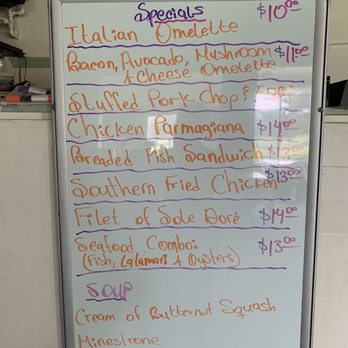 Specials
Italian Omelette $10.00
Bacon, Avocado, Mushroom $11.00
& Cheese Omelette
Stuffed Pork Chop
Chicken Parmagiana $14.00
Breaded Fish Sandwich $13.00
Southern Fried Chicken $13.00
Filet of Sole Doré $14.00
Seafood Combo: $13.00
(Fish, Calamari & Oysters)
SOUP
Cream of Butternut Squash
Minestrone